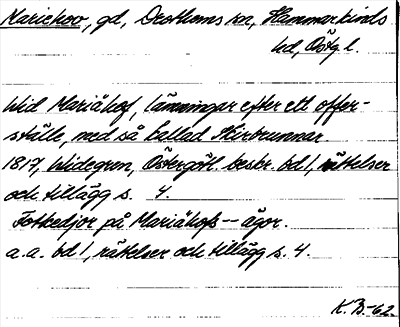 Mariehov, gd, Drothems sn, Hammarkinds
hd, Östg l.
Wid Mariähof, lämningar efter ett offer-
ställe, med så kallad
1817, Widegren, Östergötl. beskr. bd 1, rättelser
och tillägg s. 4.
Fotkedjor på Mariähofs -- ägor.
a.a. bd 1, rättelser och tillägg s. 4.
K. B. -62.